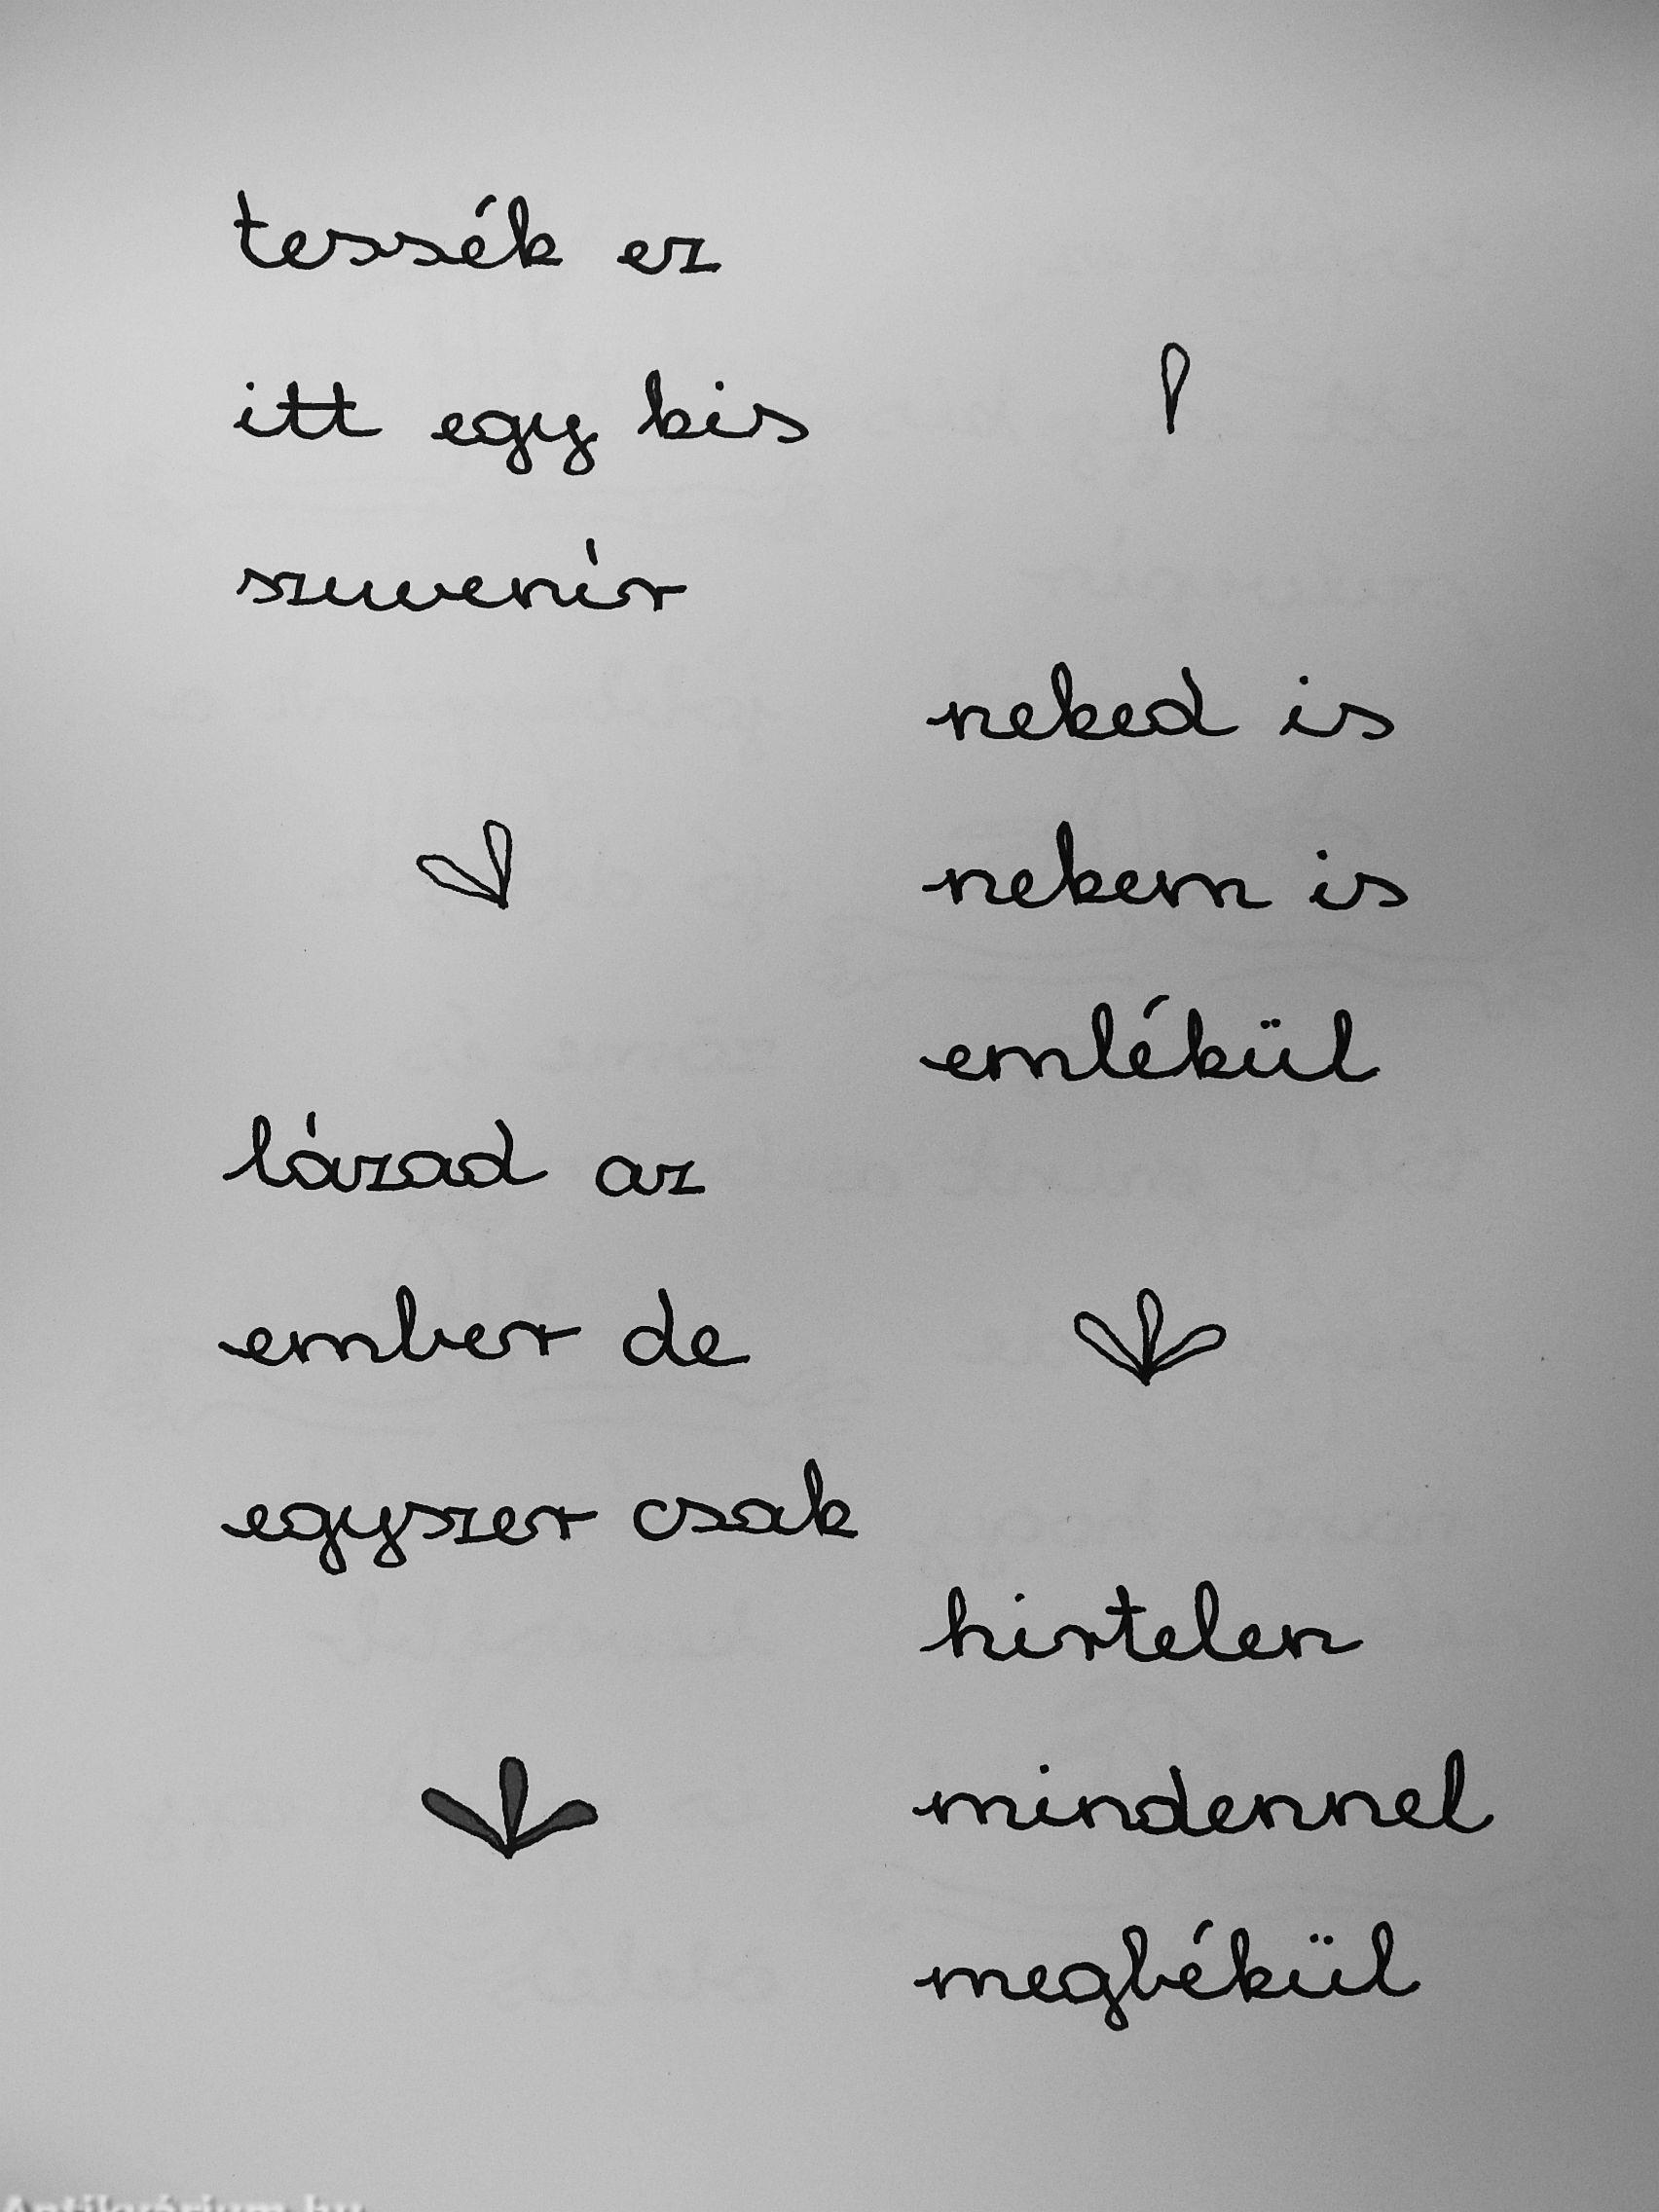 tessék ez
itt egy kis
szuvenír
neked is
nekem is
emlékül
lázad az
ember de
egyszer csak
hirtelen
mindennel
megbékül
Antikvárium.hu